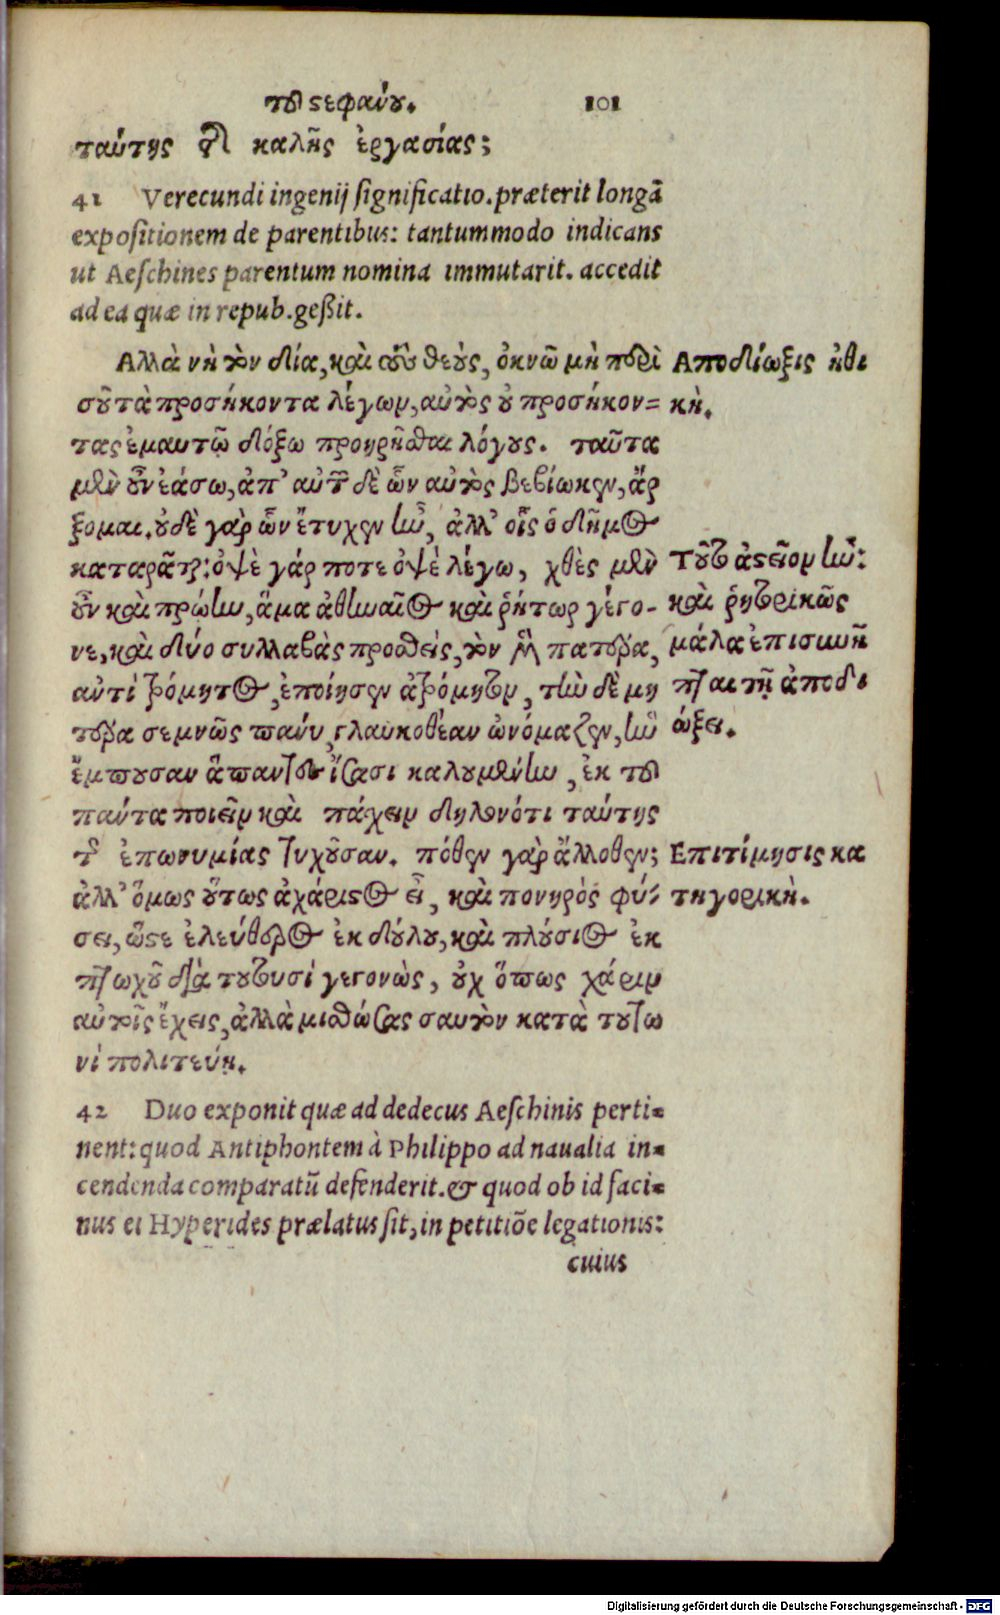 τοῦ στεφάνου. 101
ταύτης τῆς καλῆς ἐργασίας;
41 Verecundi ingenij ſignificatio. præterit longā
expoſitionem de parentibus: tantummodo indicans
ut Aeſchines parentum nomina immutarit. accedit
ad ea quæ in repub. geßit.
Αλλὰ νὴ τὸν δία, καὶ τοὺς θεοὺς, ὀκνῶ μὴ περὶ
σοῦ τὰ προσήκοντα λέγων, αὐτὸς οὐ προσήκον=
τας ἐμαυτῷ δόξω προῃρῆσθαι λόγους. ταῦτα
μὲν οὖν ἐάσω, ἀπ' αὐτῶν δὲ ὧν αὐτὸς βεβίωκεν, ἄρ
ξομαι. οὐδὲ γὰρ ὧν ἔτυχεν ἦν, ἀλλ' οἷς ὁ δῆμος
καταρᾶται: ὀψὲ γάρ ποτε ὀψὲ λέγω, χθὲς μὲν
οὖν καὶ πρώην, ἅμα ἀθηναῖος καὶ ῥήτωρ γέγο-
νε, καὶ δύο συλλαβὰς προσθεὶς, τὸν μὲν πατέρα,
αντὶ τρόμητος, ἐποίησεν ατρόμητον, τὴν δὲ μη
τέρα σεμνῶς πάνυ, γλαυκοθέαν ὠνόμαζεν, ἣν
ἔμπουσαν ἅπαντες ἴσασι καλουμένην, ἐκ τοῦ
πάντα ποιεῖν καὶ πάχειν δηλονότι ταύτης
τῆς ἐπωνυμίας τυχοῦσαν. πόθεν γὰρ ἄλλοθεν;
ἀλλ' ὅμως οὕτως ἀχάριστος εἶ, καὶ πονηρὸς φύ-
σει, ὥστε ἐλεύθερος ἐκ δούλου, καὶ πλούσιος ἐκ
πτωχοῦ διὰ τουτουσὶ γεγονὼς, οὐχ ὅπως χάριν
αὐτοῖς ἔχεις, ἀλλὰ μισθώσας σαυτὸν κατὰ τουτω
νὶ πολιτεύῃ.
Αποδίωξις ἠθι
κὴ.
Τοῦτο ἀστεῖον ἦν:
καὶ ῥητορικῶς
μάλα ἐπισυνῆ
πται τῇ ἀποδι
ώξει.
Επιτίμησις κα
τηγορικὴ.
42 Duo exponit quæ ad dedecus Aeſchinis perti=
nent: quod Antiphontem à Philippo ad naualia in=
cendenda comparatū defenderit. & quod ob id faci=
nus ei Hyperides prælatus ſit, in petitiōe legationis:
cuius
Digitalisierung gefördert durch die Deutsche Forschungsgemeinschaft - DFG